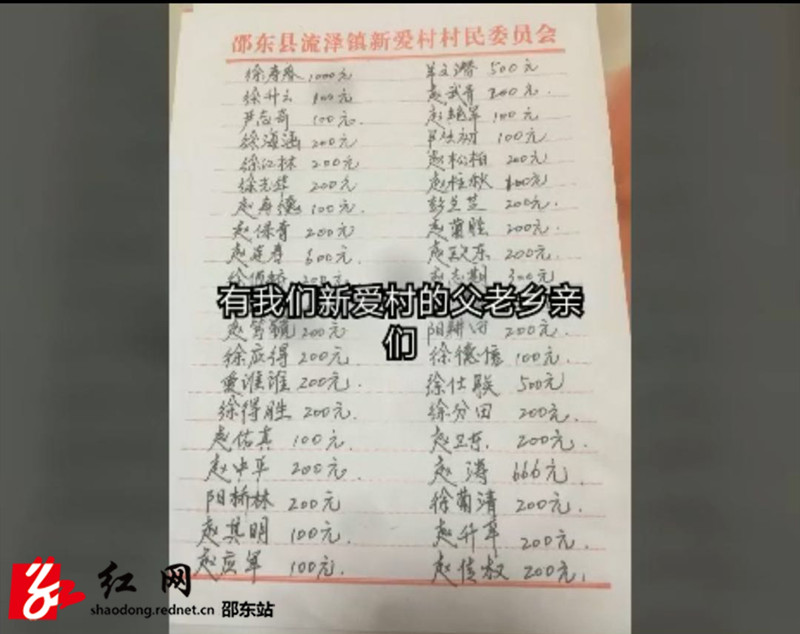 邵东县流泽镇新爱村村民委员会
徐寿春 1000元 500元
徐升云 元 赵武青 200元
尹 100元 100元
徐海涵 200元 100元
徐江林 200元 赵松柏 200元
徐 200元 赵桂秋 元
赵 100元 彭 200元
赵保青 200元 赵菊胜 200元
赵连春 600元 赵 东 200元
赵志期 300元
有我们新爱村的父老乡亲
们
赵 200元 阳耕田 200元
徐应得 200元 徐德 100元
谁谁 200元 徐仕联 500元
徐得胜 200元 徐分田 200元
赵佑真 100元 赵卫东 200元
赵中平 200元 赵涛 666元
阳桥林 200元 徐菊清 200元
赵其明 100元 赵升平 200元
赵应军 100元 赵佳叔 200元
红网
shaodong.rednet.cn 邵东站